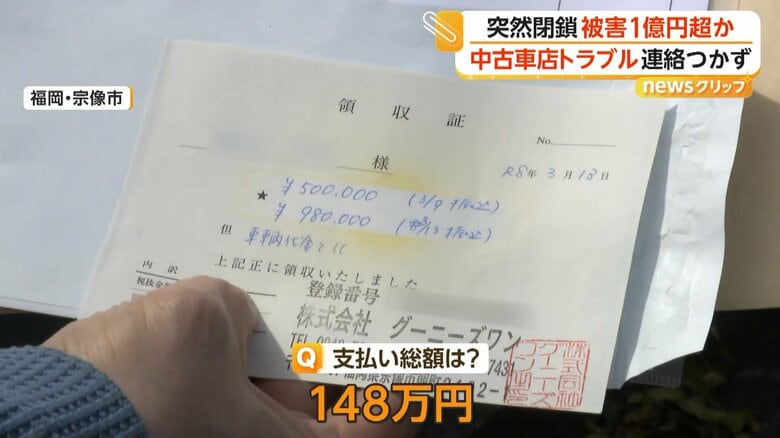 突然閉鎖 被害1億円超か
中古車店トラブル 連絡つかず
newsクリップ
福岡・宗像市
領収証
No.
様
R8年 3月 13日
★ ¥500.000 (3/9 振込)
¥980.000 (3/13 振込)
但 車両代金として
上記正に領収いたしました
内訳
税抜金
登録番号
株式会社 グーニーズワン
TEL
7431
福岡県宗像市
Q 支払い総額は?
148万円